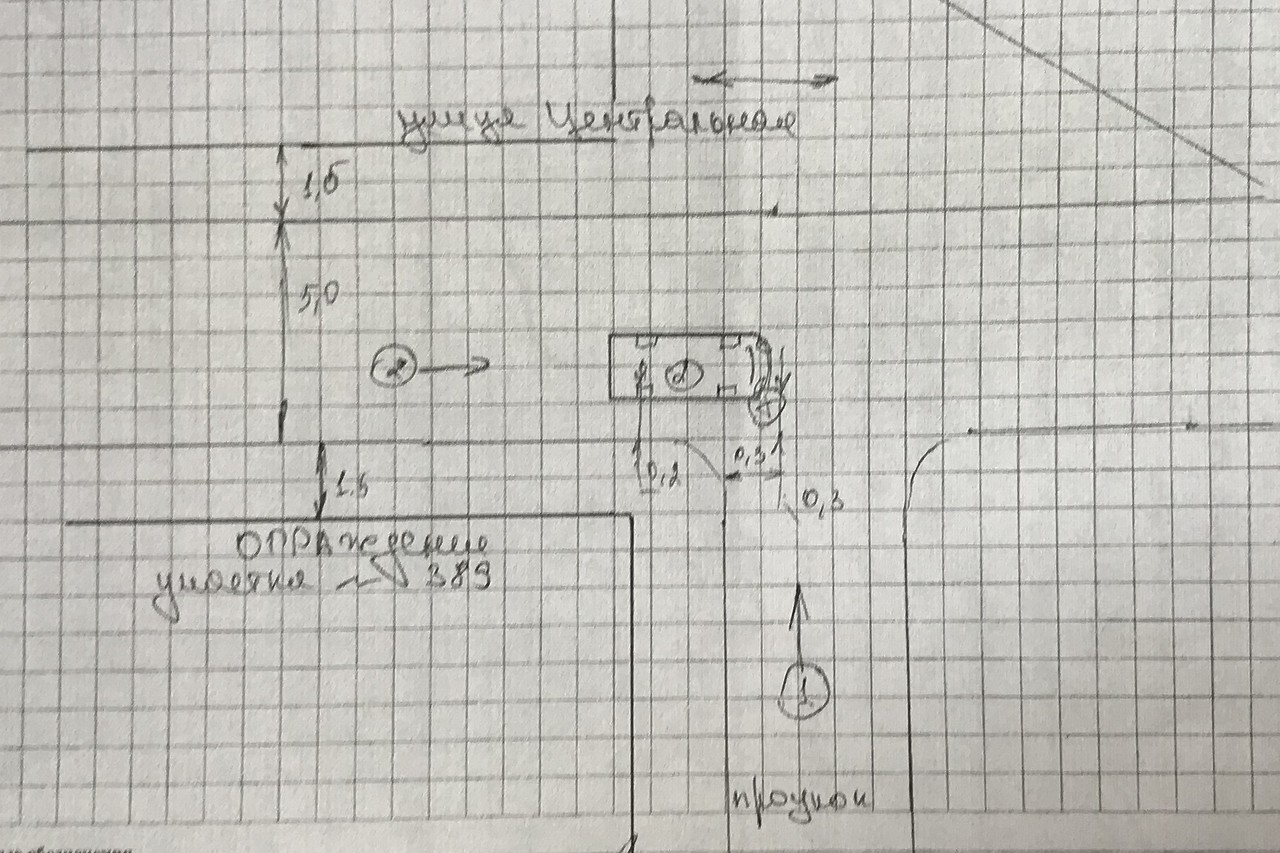 улица Центральная
1,5
5,0
2
2
1
0,2
0,3
0,3
1.5
ограждение
участка № 389
1
проулок